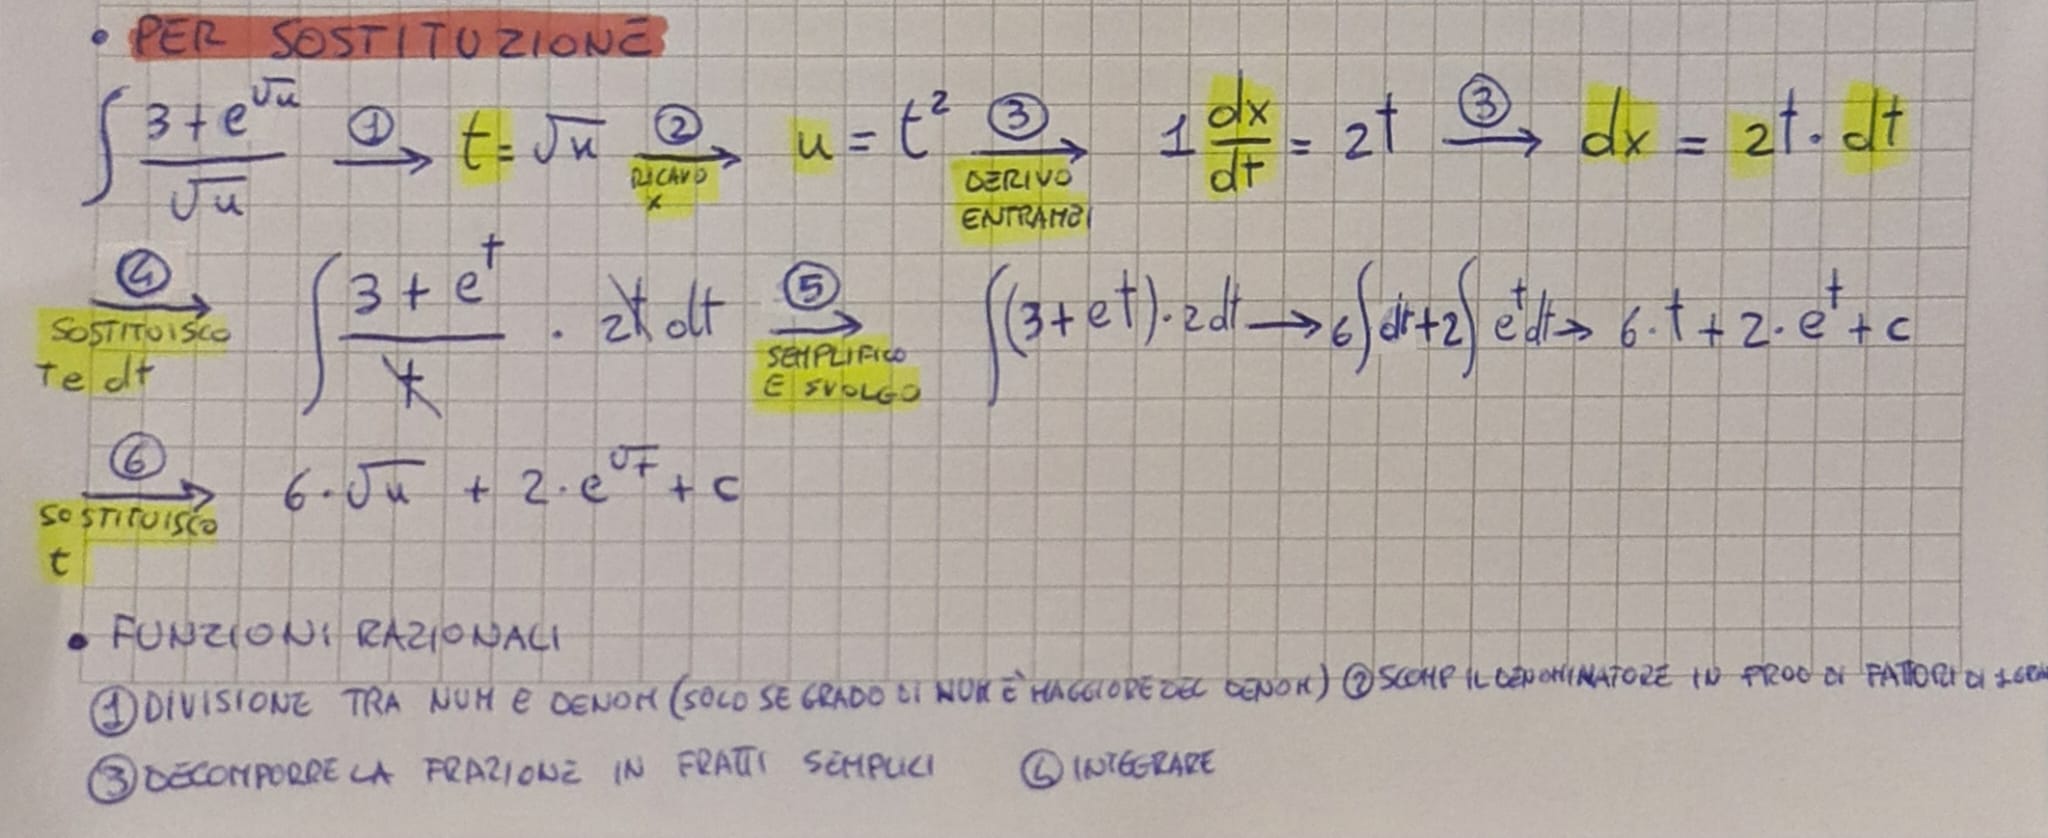 • PER SOSTITUZIONE
∫ (3+e^√u)/√u ①→ t = √u ②→ RICAVO x u = t² ③→ DERIVO ENTRAMBI 1 dx/dt = 2t ③→ dx = 2t · dt
④→ SOSTITUISCO T e dt ∫ (3+e^t)/t · 2t dt ⑤→ SEMPLIFICO E SVOLGO ∫(3+e^t)·2dt → 6∫dt+2∫e^t dt → 6·t+2·e^t+c
⑥→ SOSTITUISCO t 6·√u + 2·e^√t + c
• FUNZIONI RAZIONALI
① DIVISIONE TRA NUM E DENOM (SOLO SE GRADO DI NUM È MAGGIORE DEL DENOM) ② SCOMP IL DENOMINATORE IN PROD DI FATTORI DI 1
③ DECOMPORRE LA FRAZIONE IN FRATTI SEMPLICI ④ INTEGRARE